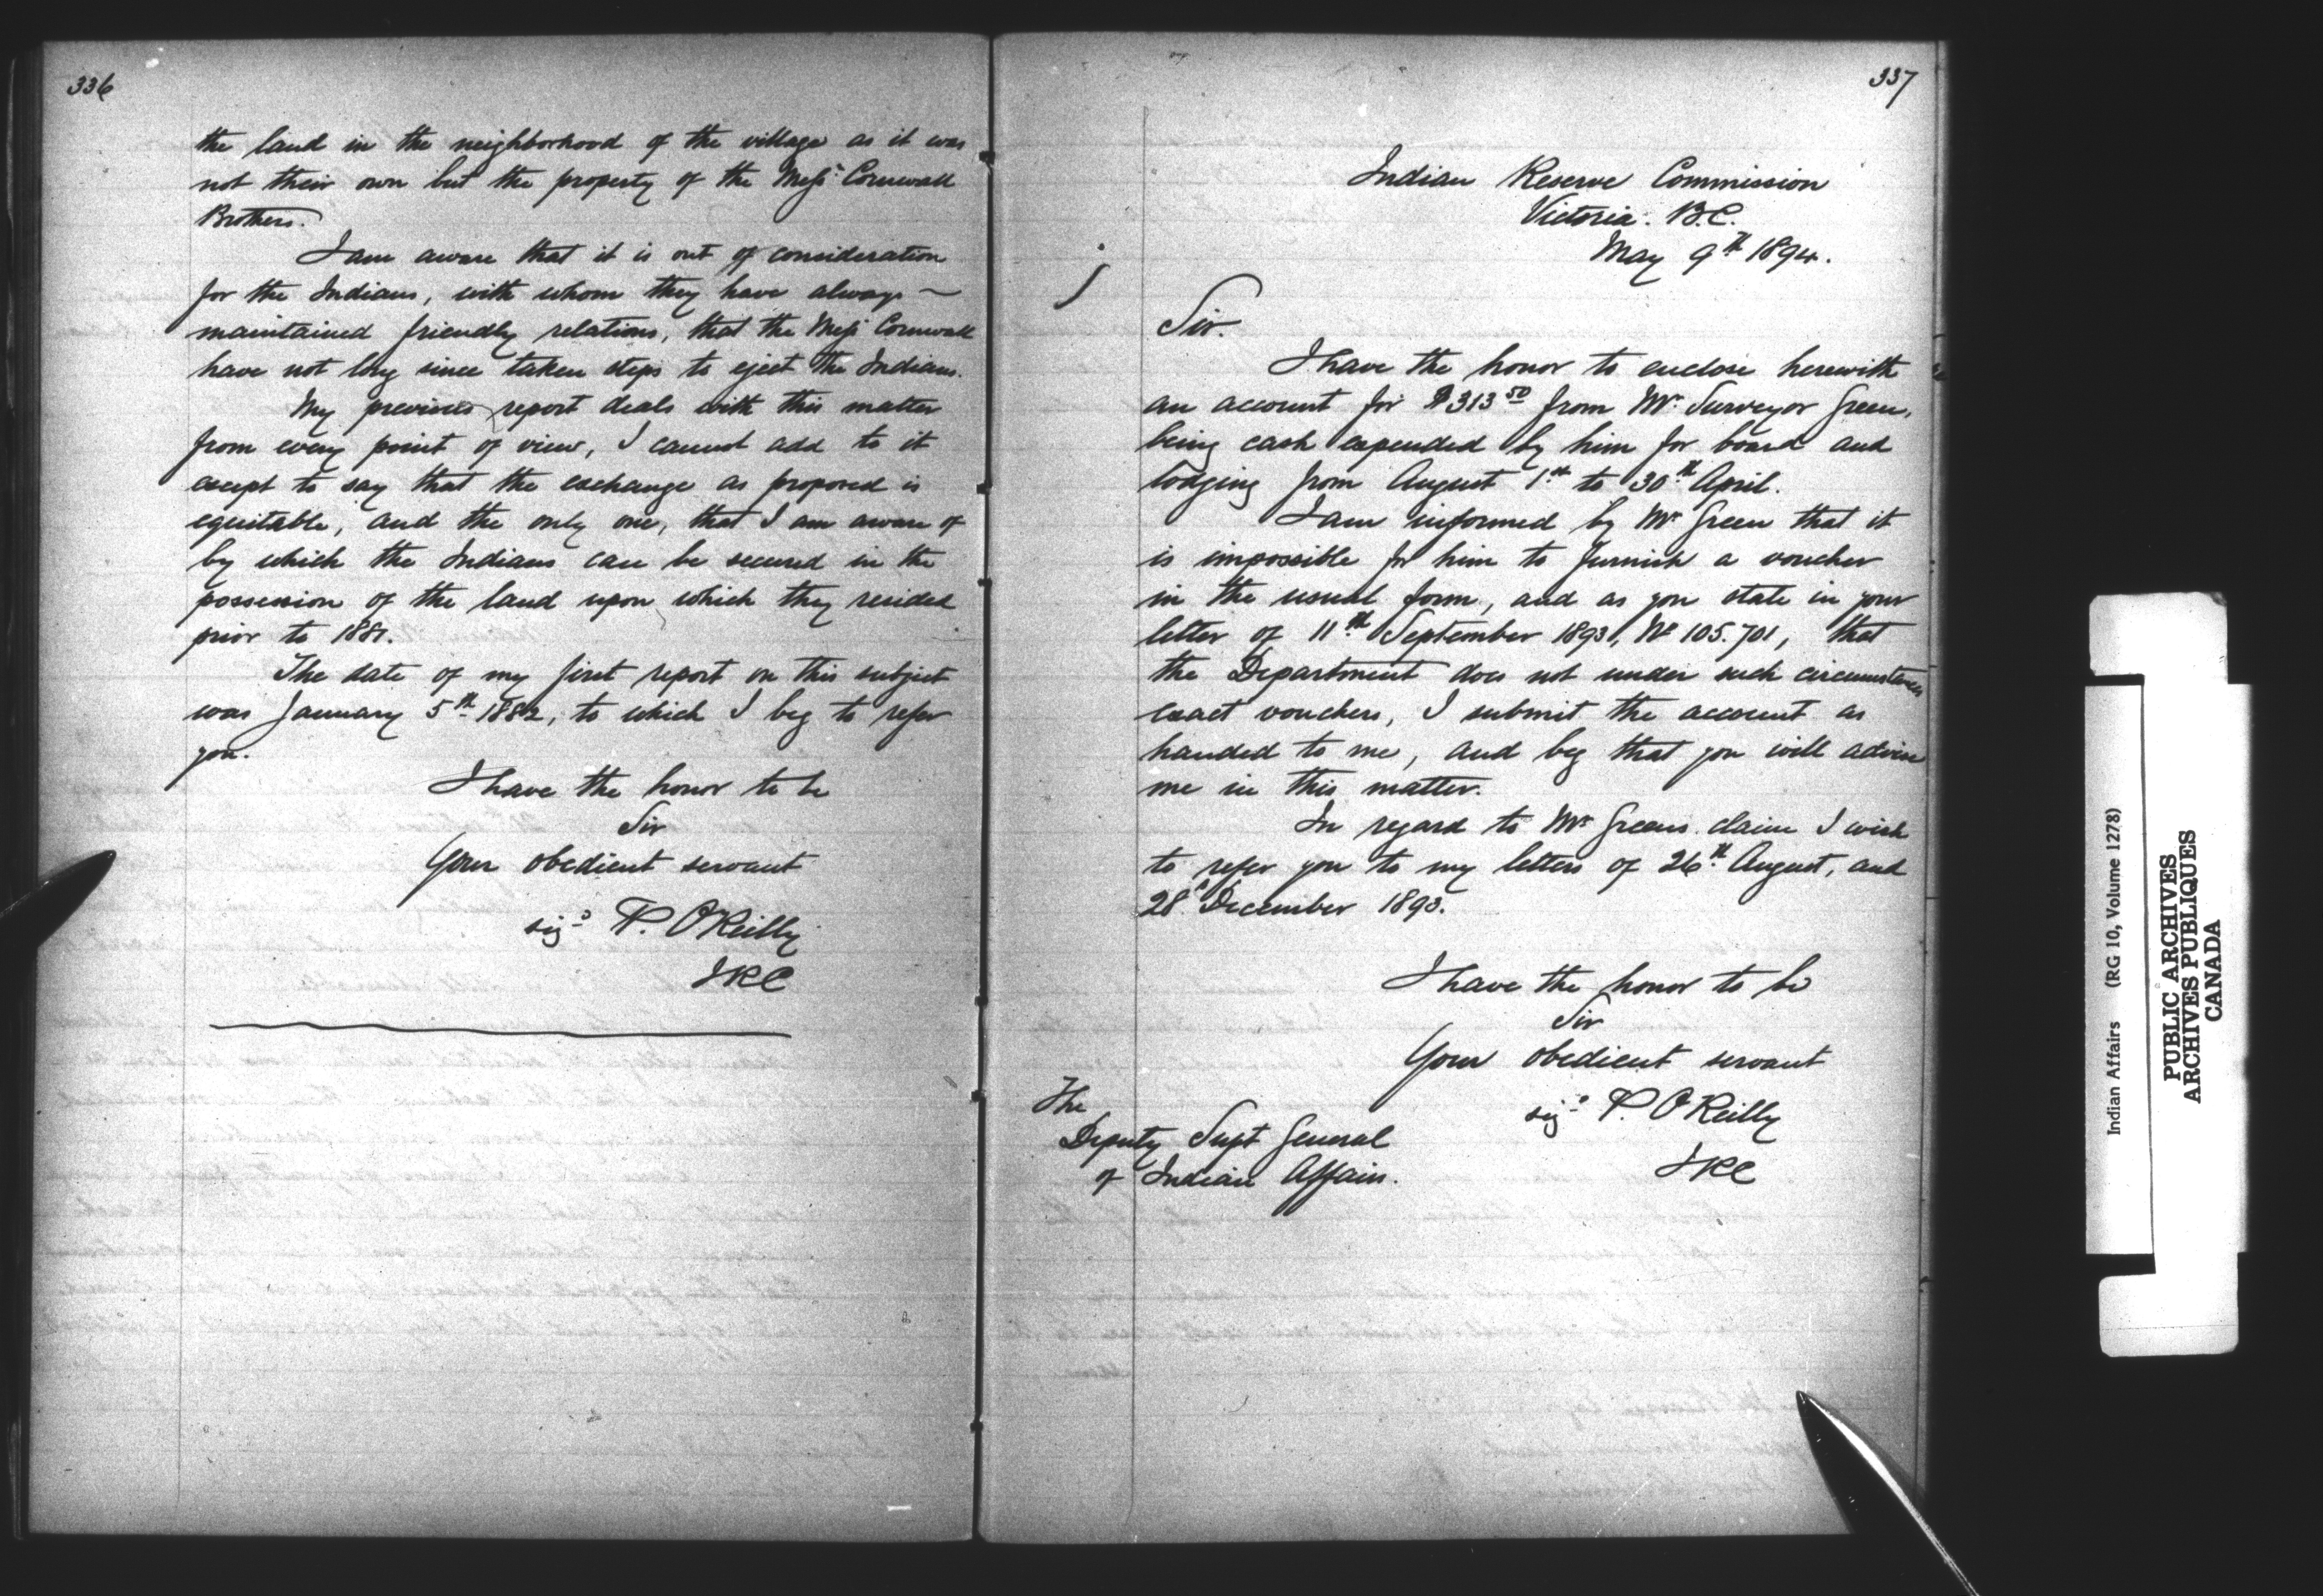 336
the land in the neighborhood of the village as it was
not their own but the property of the Messrs Cornwall
Brothers.
I am aware that it is out of consideration
for the Indians, with whom they have always
maintained friendly relations, that the Messrs Cornwall
have not long since taken steps to eject the Indians.
My previous report deals with this matter
from every point of view, I cannot add to it
except to say that the exchange as proposed is
equitable, and the only one, that I am aware of
by which the Indians can be secured in the
possession of the land upon which they resided
prior to 1881.
The date of my first report on this subject
was January 5th 1882, to which I beg to refer
you.
I have the honor to be
Sir
Your obedient servant
sigd P. O'Reilly
IRC
337
Indian Reserve Commission
Victoria. B.C.
May 9th 1894.
Sir.
I have the honor to enclose herewith
an account for $313 50 from Mr. Surveyor Green,
being cash expended by him for board and
lodging from August 1st to 30th April.
I am informed by Mr Green that it
is impossible for him to furnish a voucher
in the usual form, and as you state in your
letter of 11th September 1893, No 105.701, that
the Department does not under such circumstances
exact vouchers, I submit the account as
handed to me, and beg that you will advise
me in this matter.
In regard to Mr Greens claim I wish
to refer you to my letters of 26th August, and
28th December 1893.
I have the honor to be
Sir
Your obedient servant
sigd P. O'Reilly
IRC
The
Deputy Supt General
of Indian Affairs.
Indian Affairs (RG 10, Volume 1278)
PUBLIC ARCHIVES
ARCHIVES PUBLIQUES
CANADA